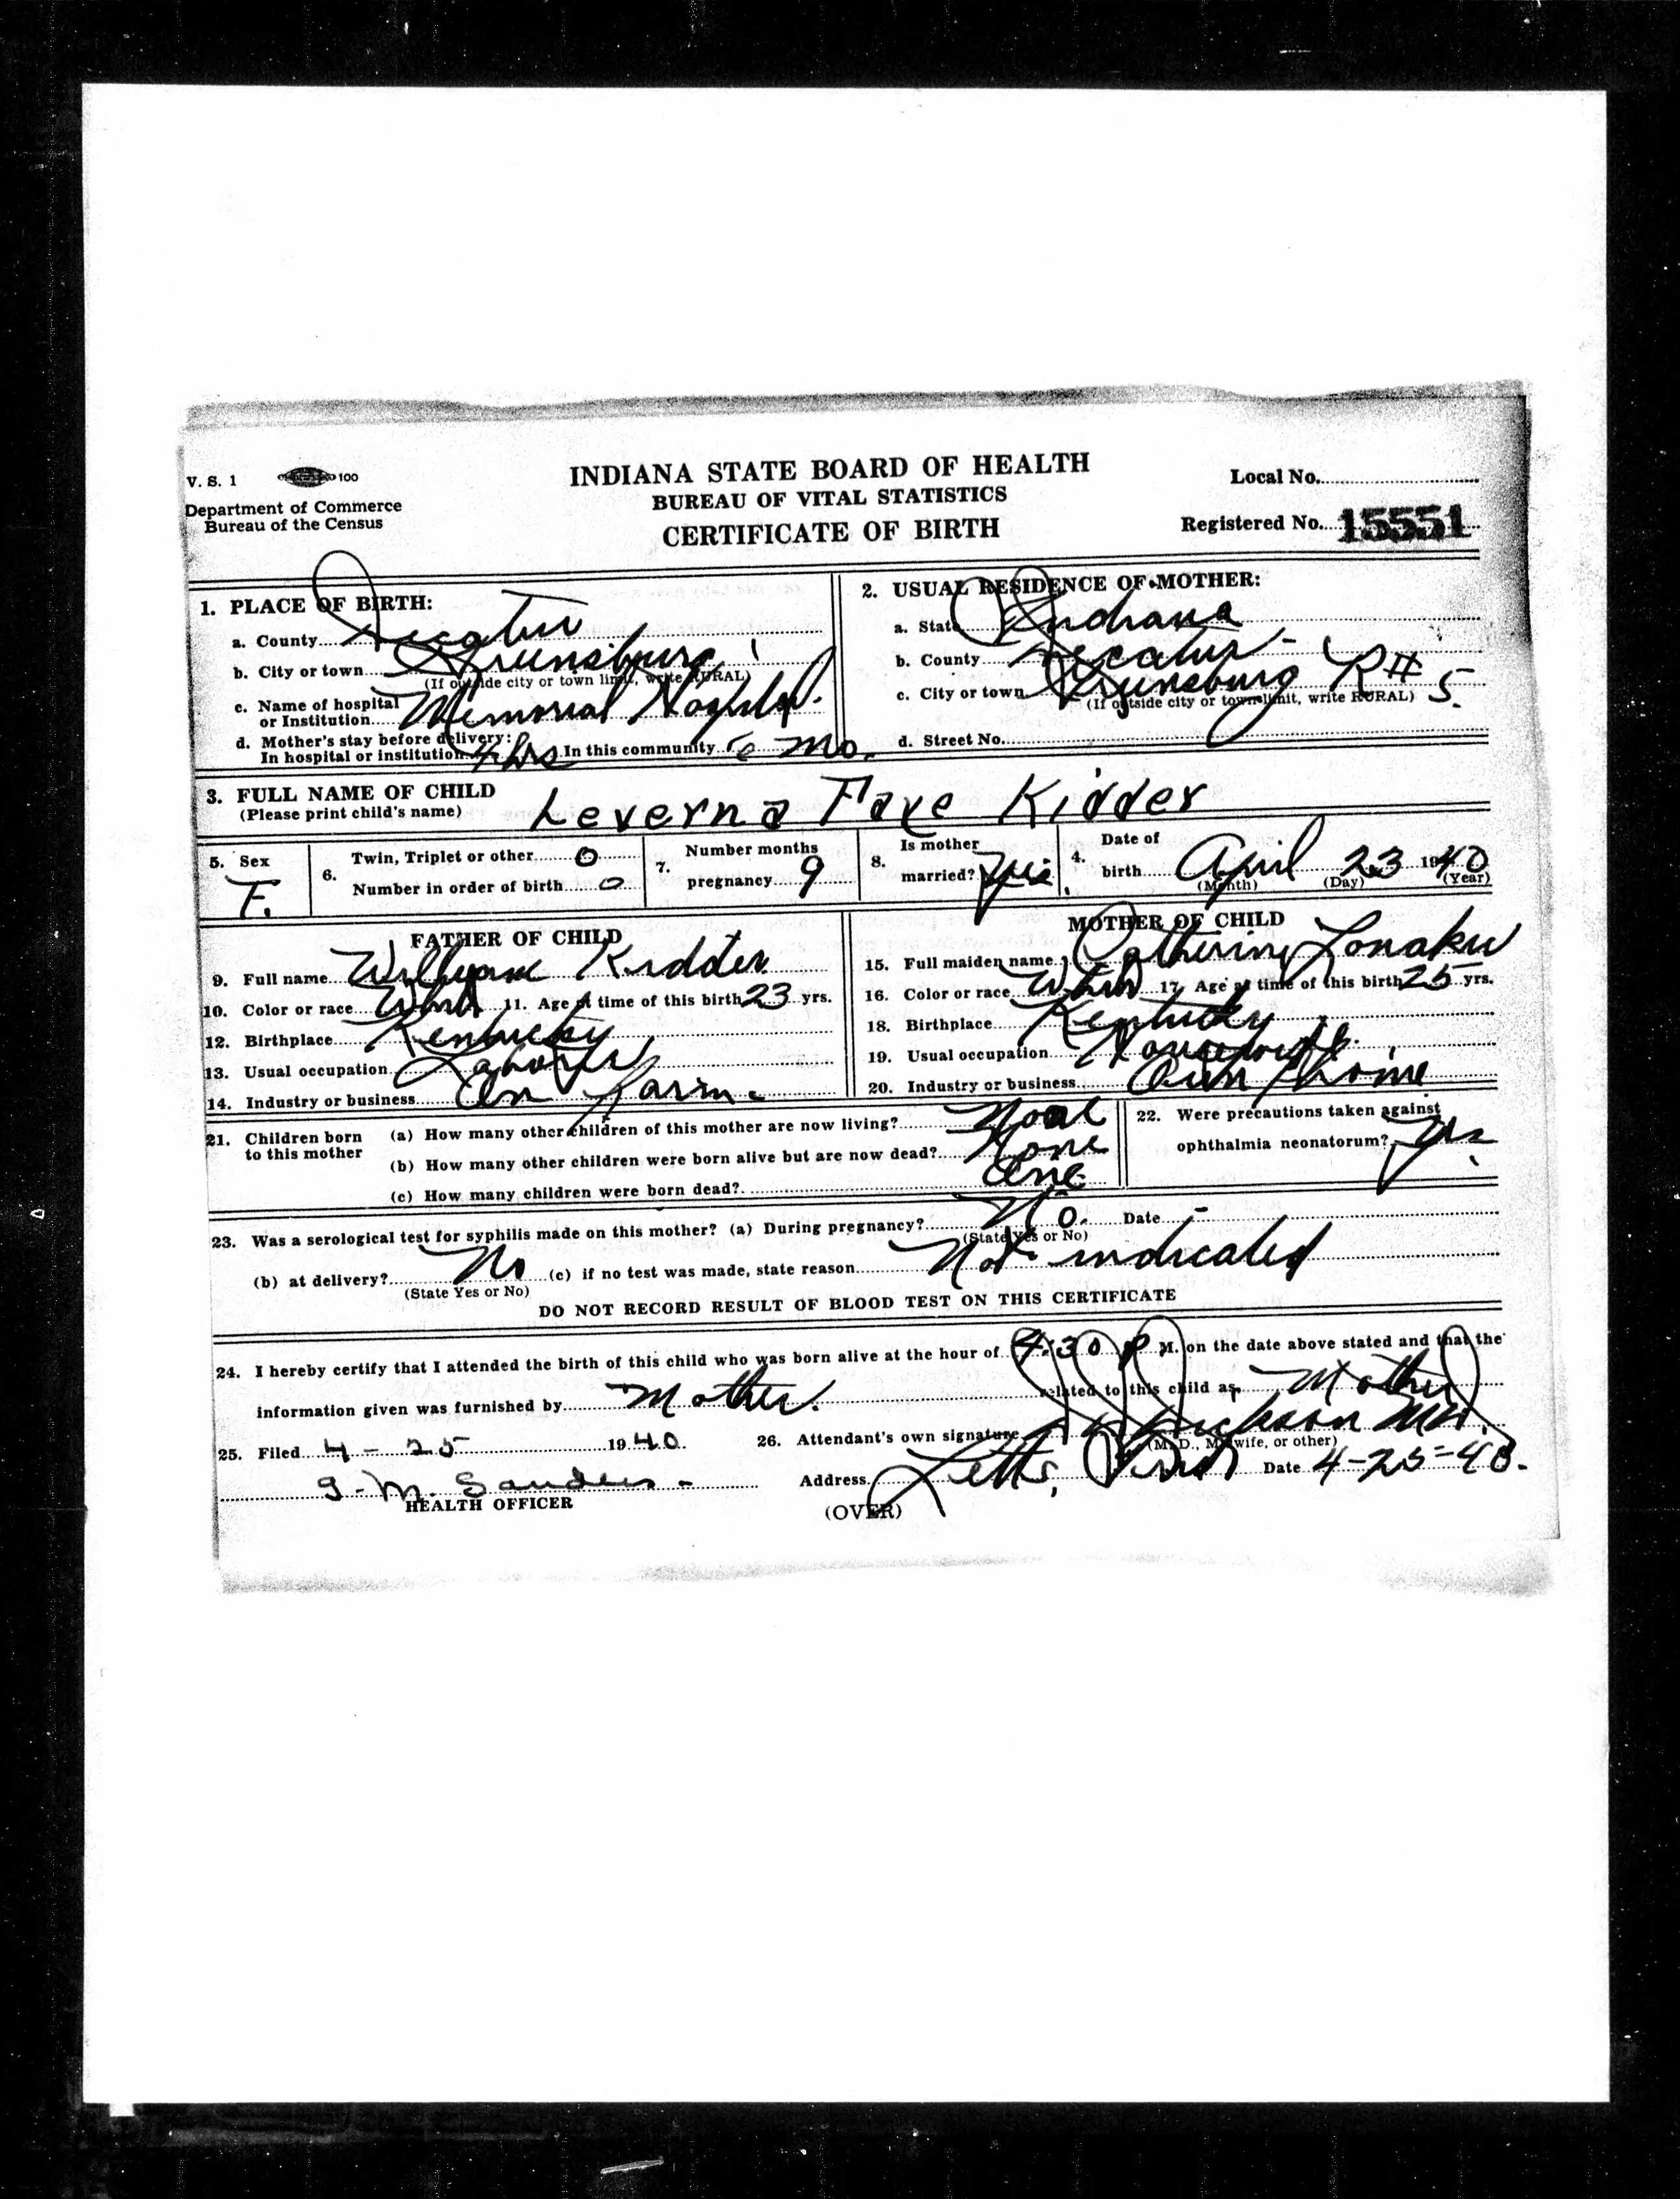 V. S. 1 100
Department of Commerce
Bureau of the Census
INDIANA STATE BOARD OF HEALTH
BUREAU OF VITAL STATISTICS
CERTIFICATE OF BIRTH
Local No.
Registered No. 15551
1. PLACE OF BIRTH:
a. County Decatur
b. City or town Greensburg
(If outside city or town limit, write RURAL)
c. Name of hospital
or Institution Memorial Hospital.
d. Mother's stay before delivery:
In hospital or institution 4 hrs In this community 6 mo.
2. USUAL RESIDENCE OF MOTHER:
a. State Indiana
b. County Decatur
c. City or town Greensburg R# 5.
(If outside city or town limit, write RURAL)
d. Street No.
3. FULL NAME OF CHILD Leverna Faye Kidder
(Please print child's name)
5. Sex F.
6. Twin, Triplet or other 0
Number in order of birth 0
7. Number months
pregnancy 9
8. Is mother
married? Yes.
4. Date of
birth April 23 1940
(Month) (Day) (Year)
FATHER OF CHILD
9. Full name William Kidder
10. Color or race White 11. Age at time of this birth 23 yrs.
12. Birthplace Kentucky
13. Usual occupation Laborer
14. Industry or business On Farm.
MOTHER OF CHILD
15. Full maiden name Catherine
16. Color or race White 17. Age at time of this birth 25 yrs.
18. Birthplace Kentucky
19. Usual occupation Housewife.
20. Industry or business Own home
21. Children born
to this mother
(a) How many other children of this mother are now living?
(b) How many other children were born alive but are now dead? None
(c) How many children were born dead? One
22. Were precautions taken against
ophthalmia neonatorum? Yes.
23. Was a serological test for syphilis made on this mother? (a) During pregnancy? No. Date -
(State Yes or No)
(b) at delivery? No (c) if no test was made, state reason Not indicated
(State Yes or No)
DO NOT RECORD RESULT OF BLOOD TEST ON THIS CERTIFICATE
24. I hereby certify that I attended the birth of this child who was born alive at the hour of 4:30 P M. on the date above stated and that the
information given was furnished by Mother. related to this child as Mother
25. Filed 4-25 1940
26. Attendant's own signature Dickson MD.
(M. D., Midwife, or other)
Sanders
HEALTH OFFICER
Address Letts, Ind Date 4-25-40.
(OVER)